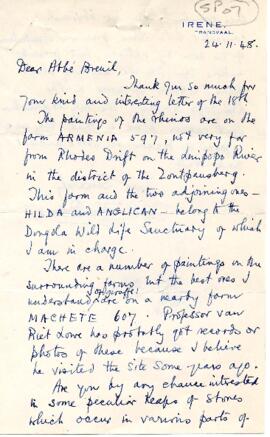 SP07
IRENE,
TRANSVAAL.
24.11.48.
Dear Abbé Breuil,
Thank you so much for
your kind and interesting letter of the 18th
The paintings of the rhinos are on the
farm ARMENIA 597, not very far
from Rhodes Drift on the Limpopo River
in the district of the Zoutpansberg.
This farm and the two adjoining ones -
HILDA and ANGLICAN - belong to the
Dongola Wild Life Sanctuary of which
I am in charge.
There are a number of paintings on the
surrounding farms but the best ones I
understand are on a nearby farm
MACHETE 607. Professor van
Riet Lowe has probably got records or
photos of these because I believe
he visited the site some years ago.
Are you by any chance interested
in some peculiar heaps of stones
which occur in various parts of